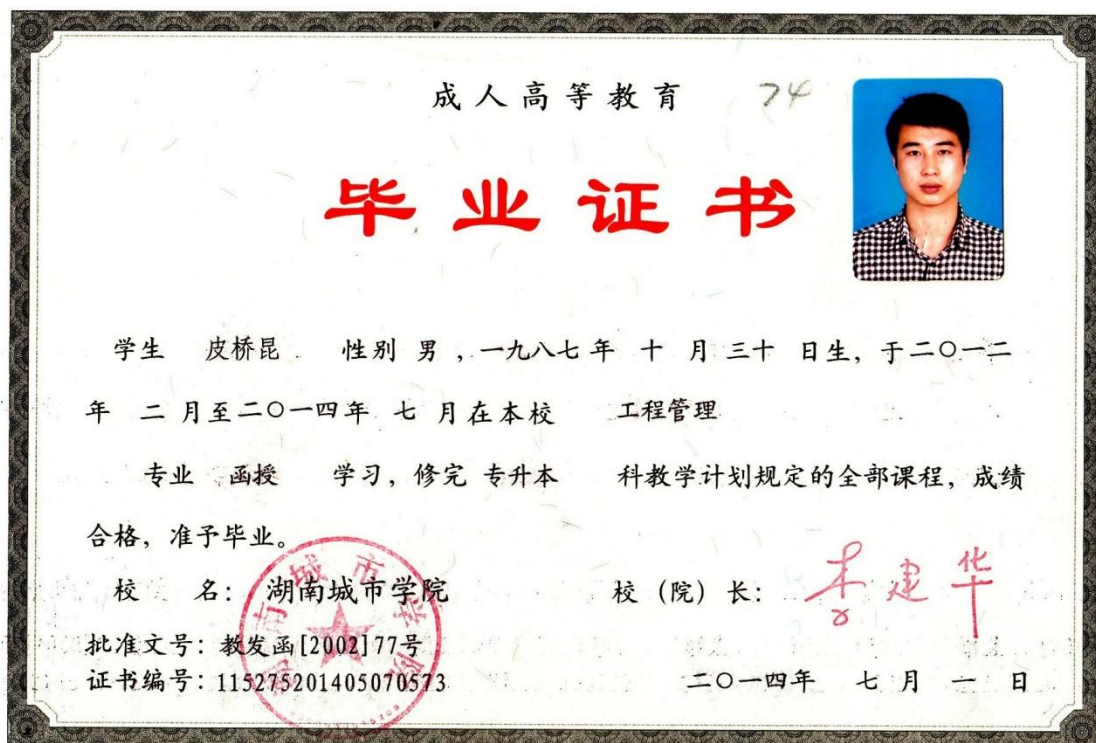 成人高等教育 74
毕业证书
学生 皮桥昆 性别 男 ,一九八七年 十 月 三十 日生, 于二〇一二
年 二 月至二〇一四年 七 月在本校 工程管理
专业 函授 学习, 修完 专升本 科教学计划规定的全部课程, 成绩
合格, 准予毕业。
校 名: 湖南城市学院 校 (院) 长: 李建华
批准文号: 教发函[2002]77号
证书编号: 115275201405070573 二〇一四年 七 月 一 日
湖南城市学院